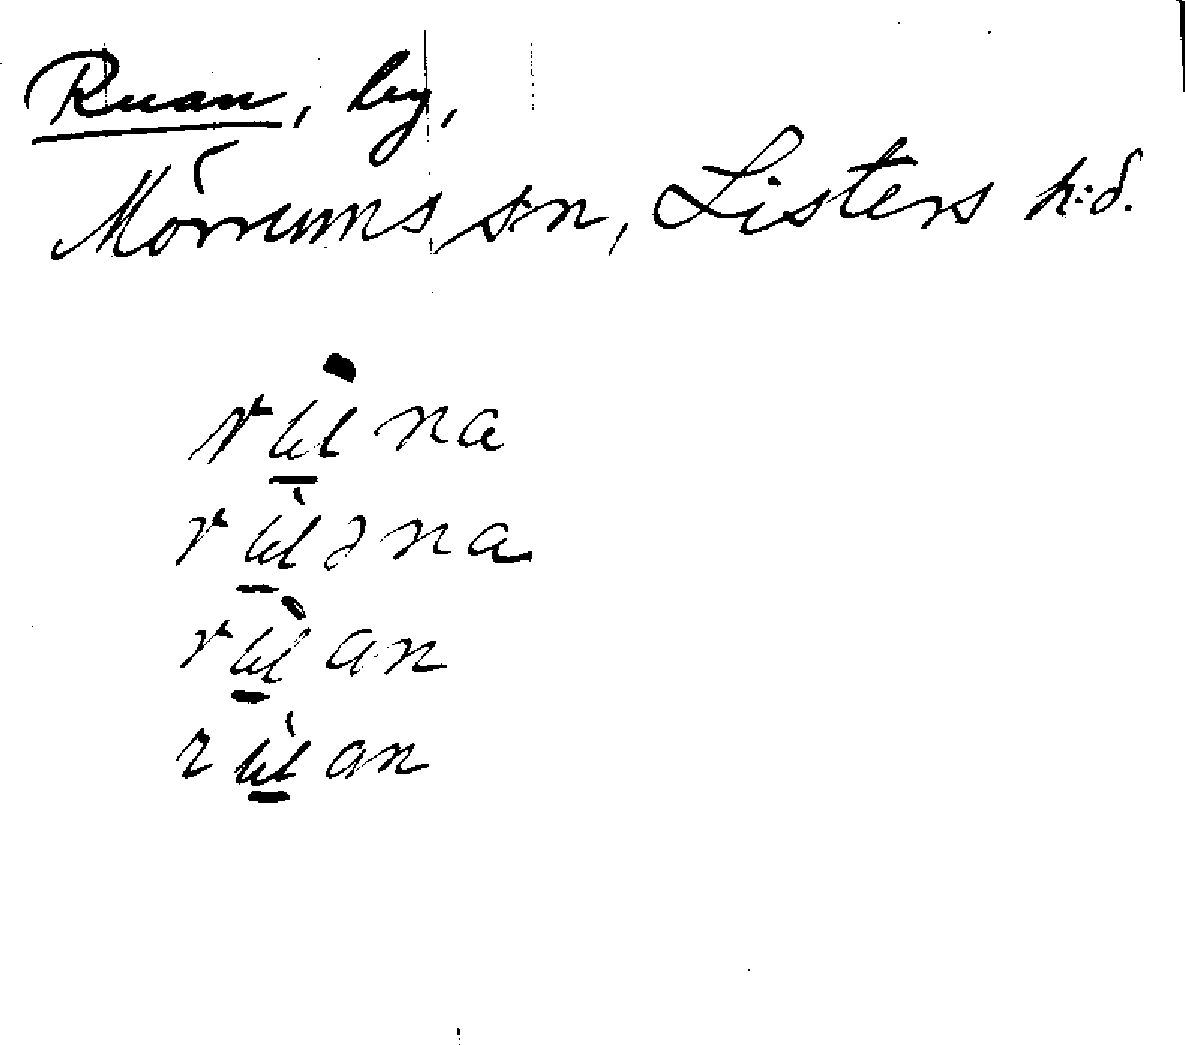 Ruan, by,
Mörrums sn, Listers h:d.
rù̱na
rù̱əna
rù̱an
rù̱an